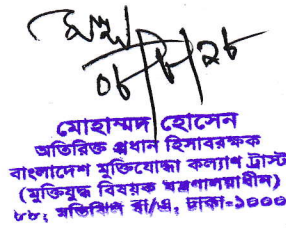 ০৮/৮/২৮
মোহাম্মদ হোসেন
অতিরিক্ত প্রধান হিসাবরক্ষক
বাংলাদেশ মুক্তিযোদ্ধা কল্যাণ ট্রাস্ট
(মুক্তিযুদ্ধ বিষয়ক মন্ত্রণালয়াধীন)
৮৮, মতিঝিল বা/এ, ঢাকা-১০০০